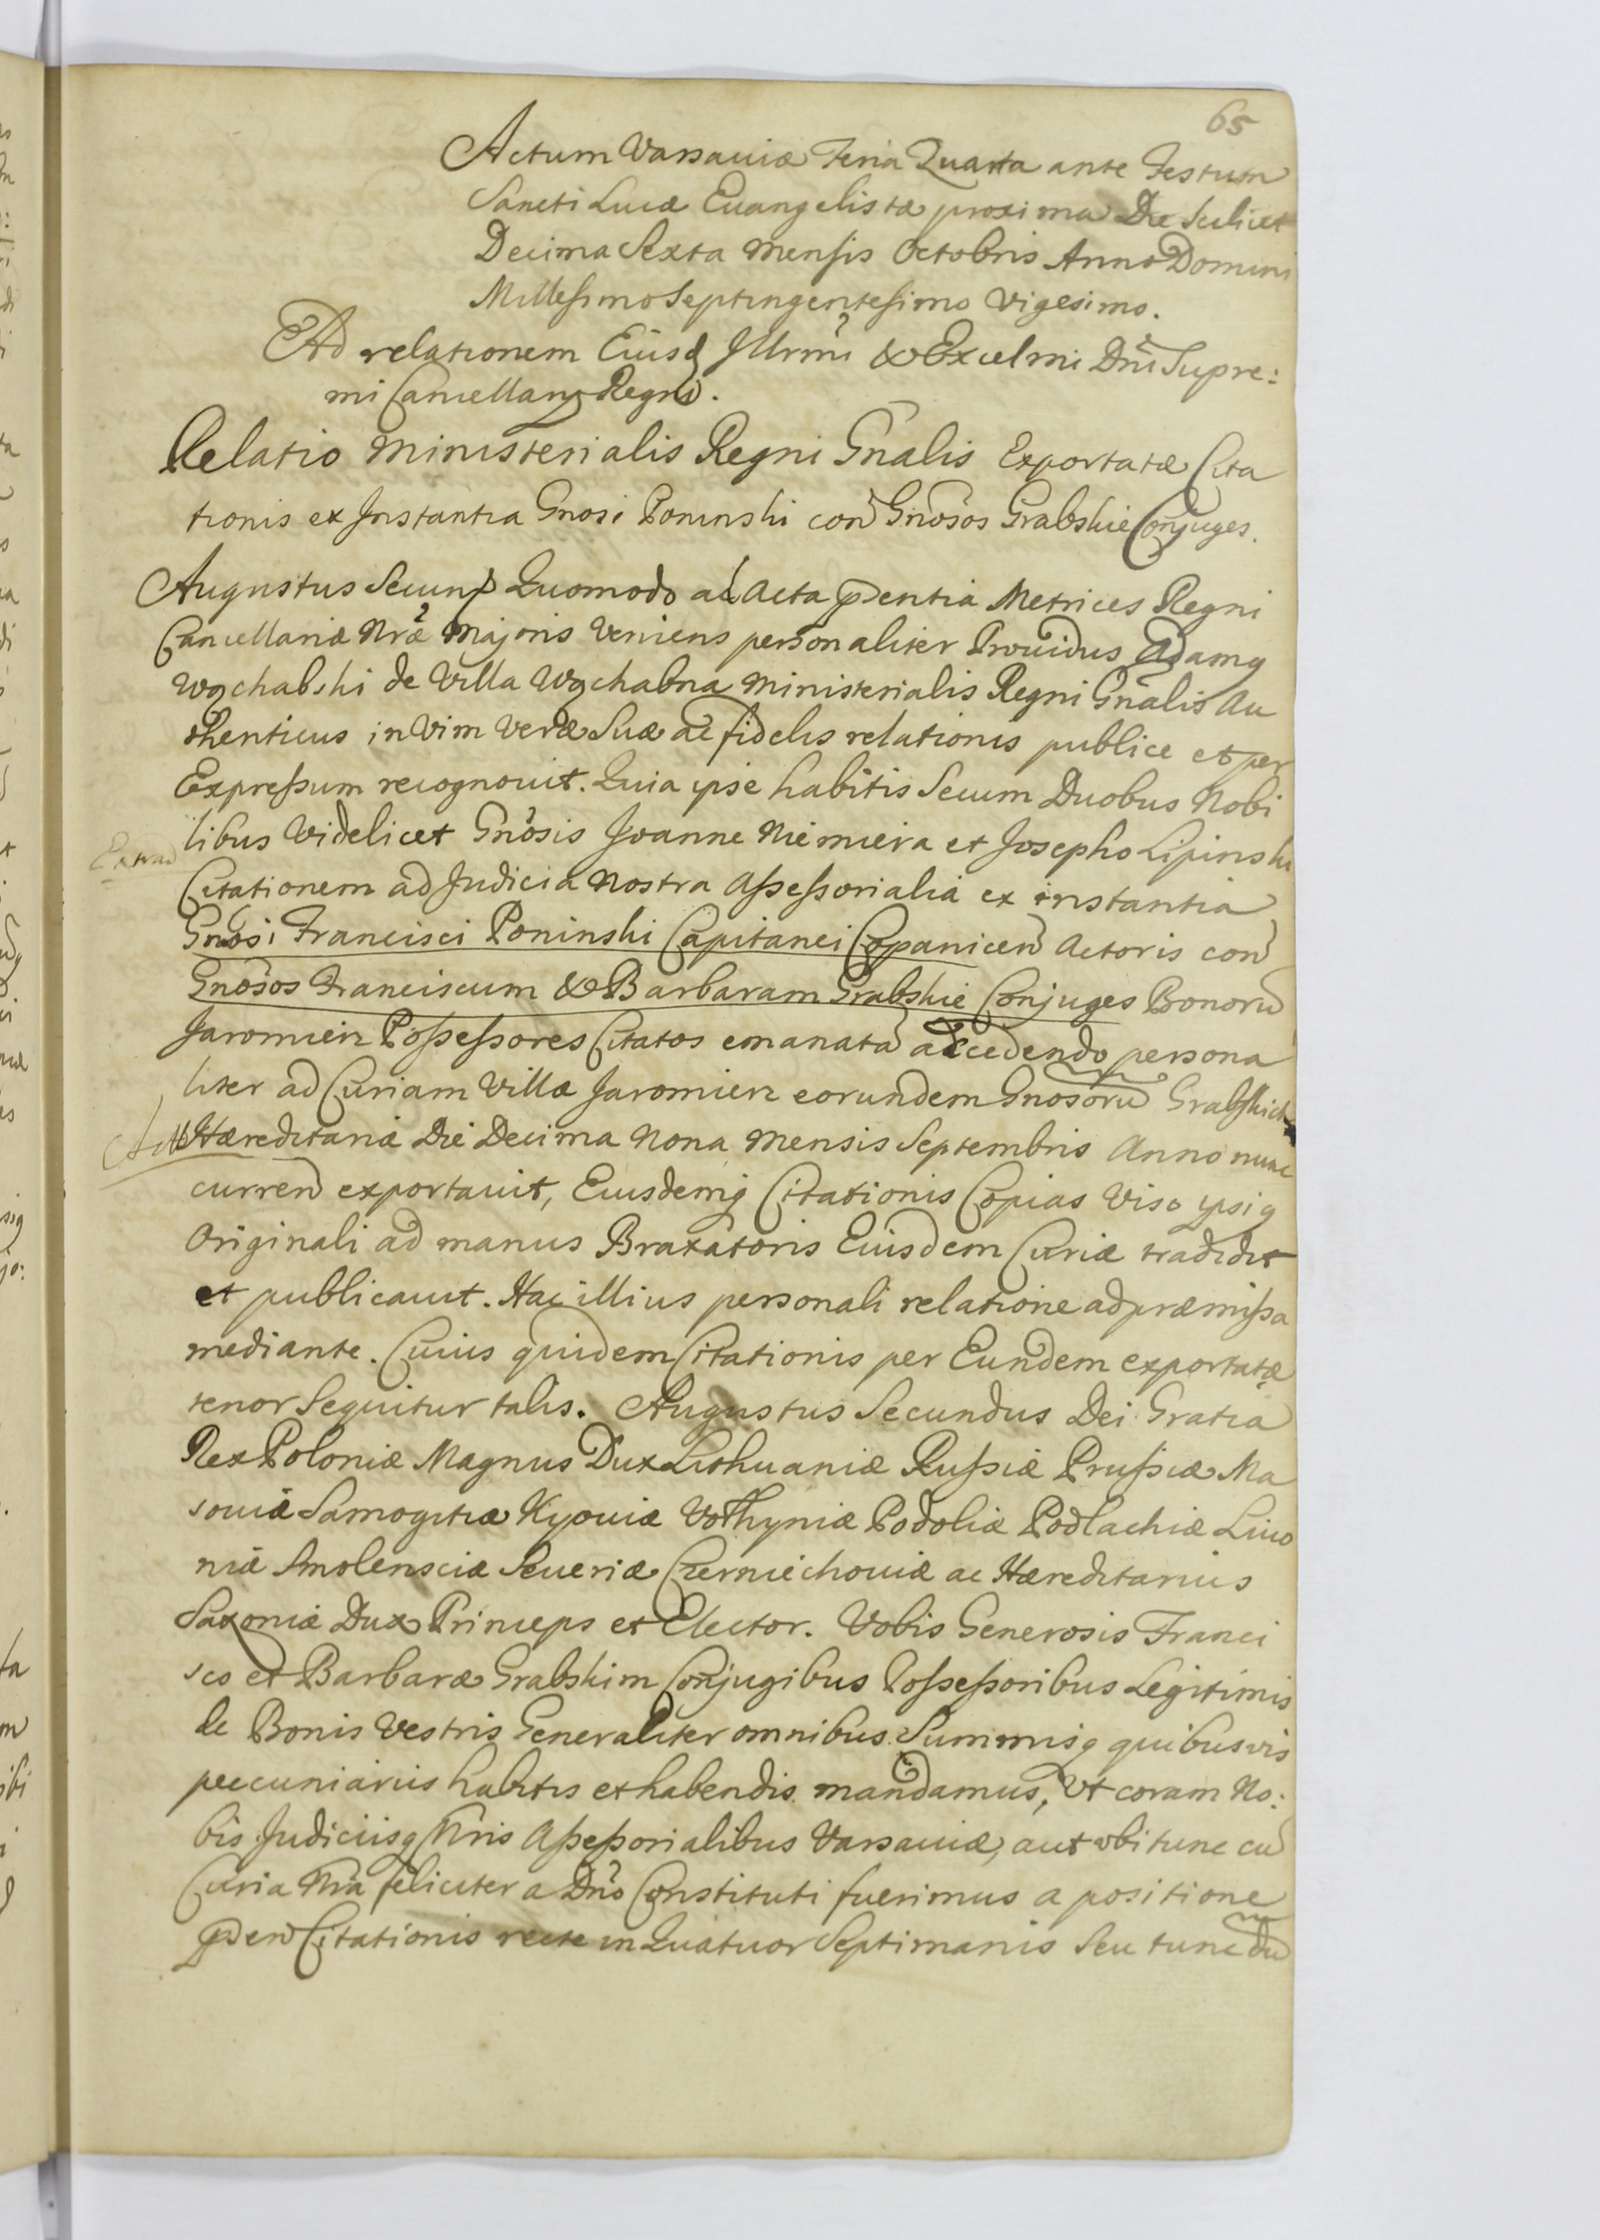 65
Actum Varsauiæ Feria Quarta ante Festum
Sancti Lucæ Euangelistæ proxima Die Scilicet
Decima Sexta Mensis Octobris Anno Domini
Millesimo Septingentesimo Vigesimo.
Ad relationem Eiusd Illrmi & Excelmi Dni Supre:
mi Cancellarÿ Regni.
Relatio Ministerialis Regni Gnalis Exportatæ Cita
tionis ex Instantia Gnosi Poninski con Gnosos Grabskie Conjuges.
Augustus Secund Quomodo ad Acta pdentia Metrices Regni
Cancellariæ Nræ Majoris Veniens personaliter Prouidus Adamq
Wychabski de Villa Wychabna Ministerialis Regni Gnalis Au
thenticus in Vim Veræ Suæ ac fidelis relationis publice et per
Expressum recognouit. Quia ipse habitis Secum Duobus Nobi
libus Videlicet Gnosis Joanne Niemiera et Josepho Lipinski
Citationem ad Judicia Nostra Assessorialia ex instantia
Gnosi Francisci Poninski Capitanei Copanicen Actoris con
Gnosos Franciscum & Barbaram Grabskie Conjuges Bonoru
Jaromierz Possessores Citatos emanata accedendo persona
liter ad Curiam Villæ Jaromierz eorundem Gnosoru Grabskich
Hæreditaria Die Decima Nona Mensis Septembris Anno nunc
curren exportauit, Eiusdemq Citationis Copias Viso ipsiq
Originali ad manus Braxatoris Eiusdem Curiæ tradidit
et publicauit. Hac illius personali relatione ad præmissa
mediante. Cuius quidem Citationis per Eundem exportatæ
tenor Sequitur talis. Augustus Secundus Dei Gratia
Rex Poloniæ Magnus Dux Lithuaniæ Russiæ Prussiæ Ma
souiæ Samogitiæ Kyouiæ Volhyniæ Podoliæ Podlachiæ Liuo
niæ Smolensciæ Seueriæ Czerniechouiæ ac Hæreditarius
Saxoniæ Dux Princeps et Elector. Vobis Generosis Franci
sco et Barbaræ Grabskim Conjugibus Possessoribus Legitimis
de Bonis Vestris Generaliter omnibus Summisq quibusvis
peccuniariis habitis et habendis mandamus, Vt coram No:
bis Judiciisq Nris Assessorialibus Varsauiæ, aut vbi tunc cu
Curia Nra feliciter a Dno Constituti fuerimus a positione
pden Citationis recte in Quatuor Septimanis Seu tunc du